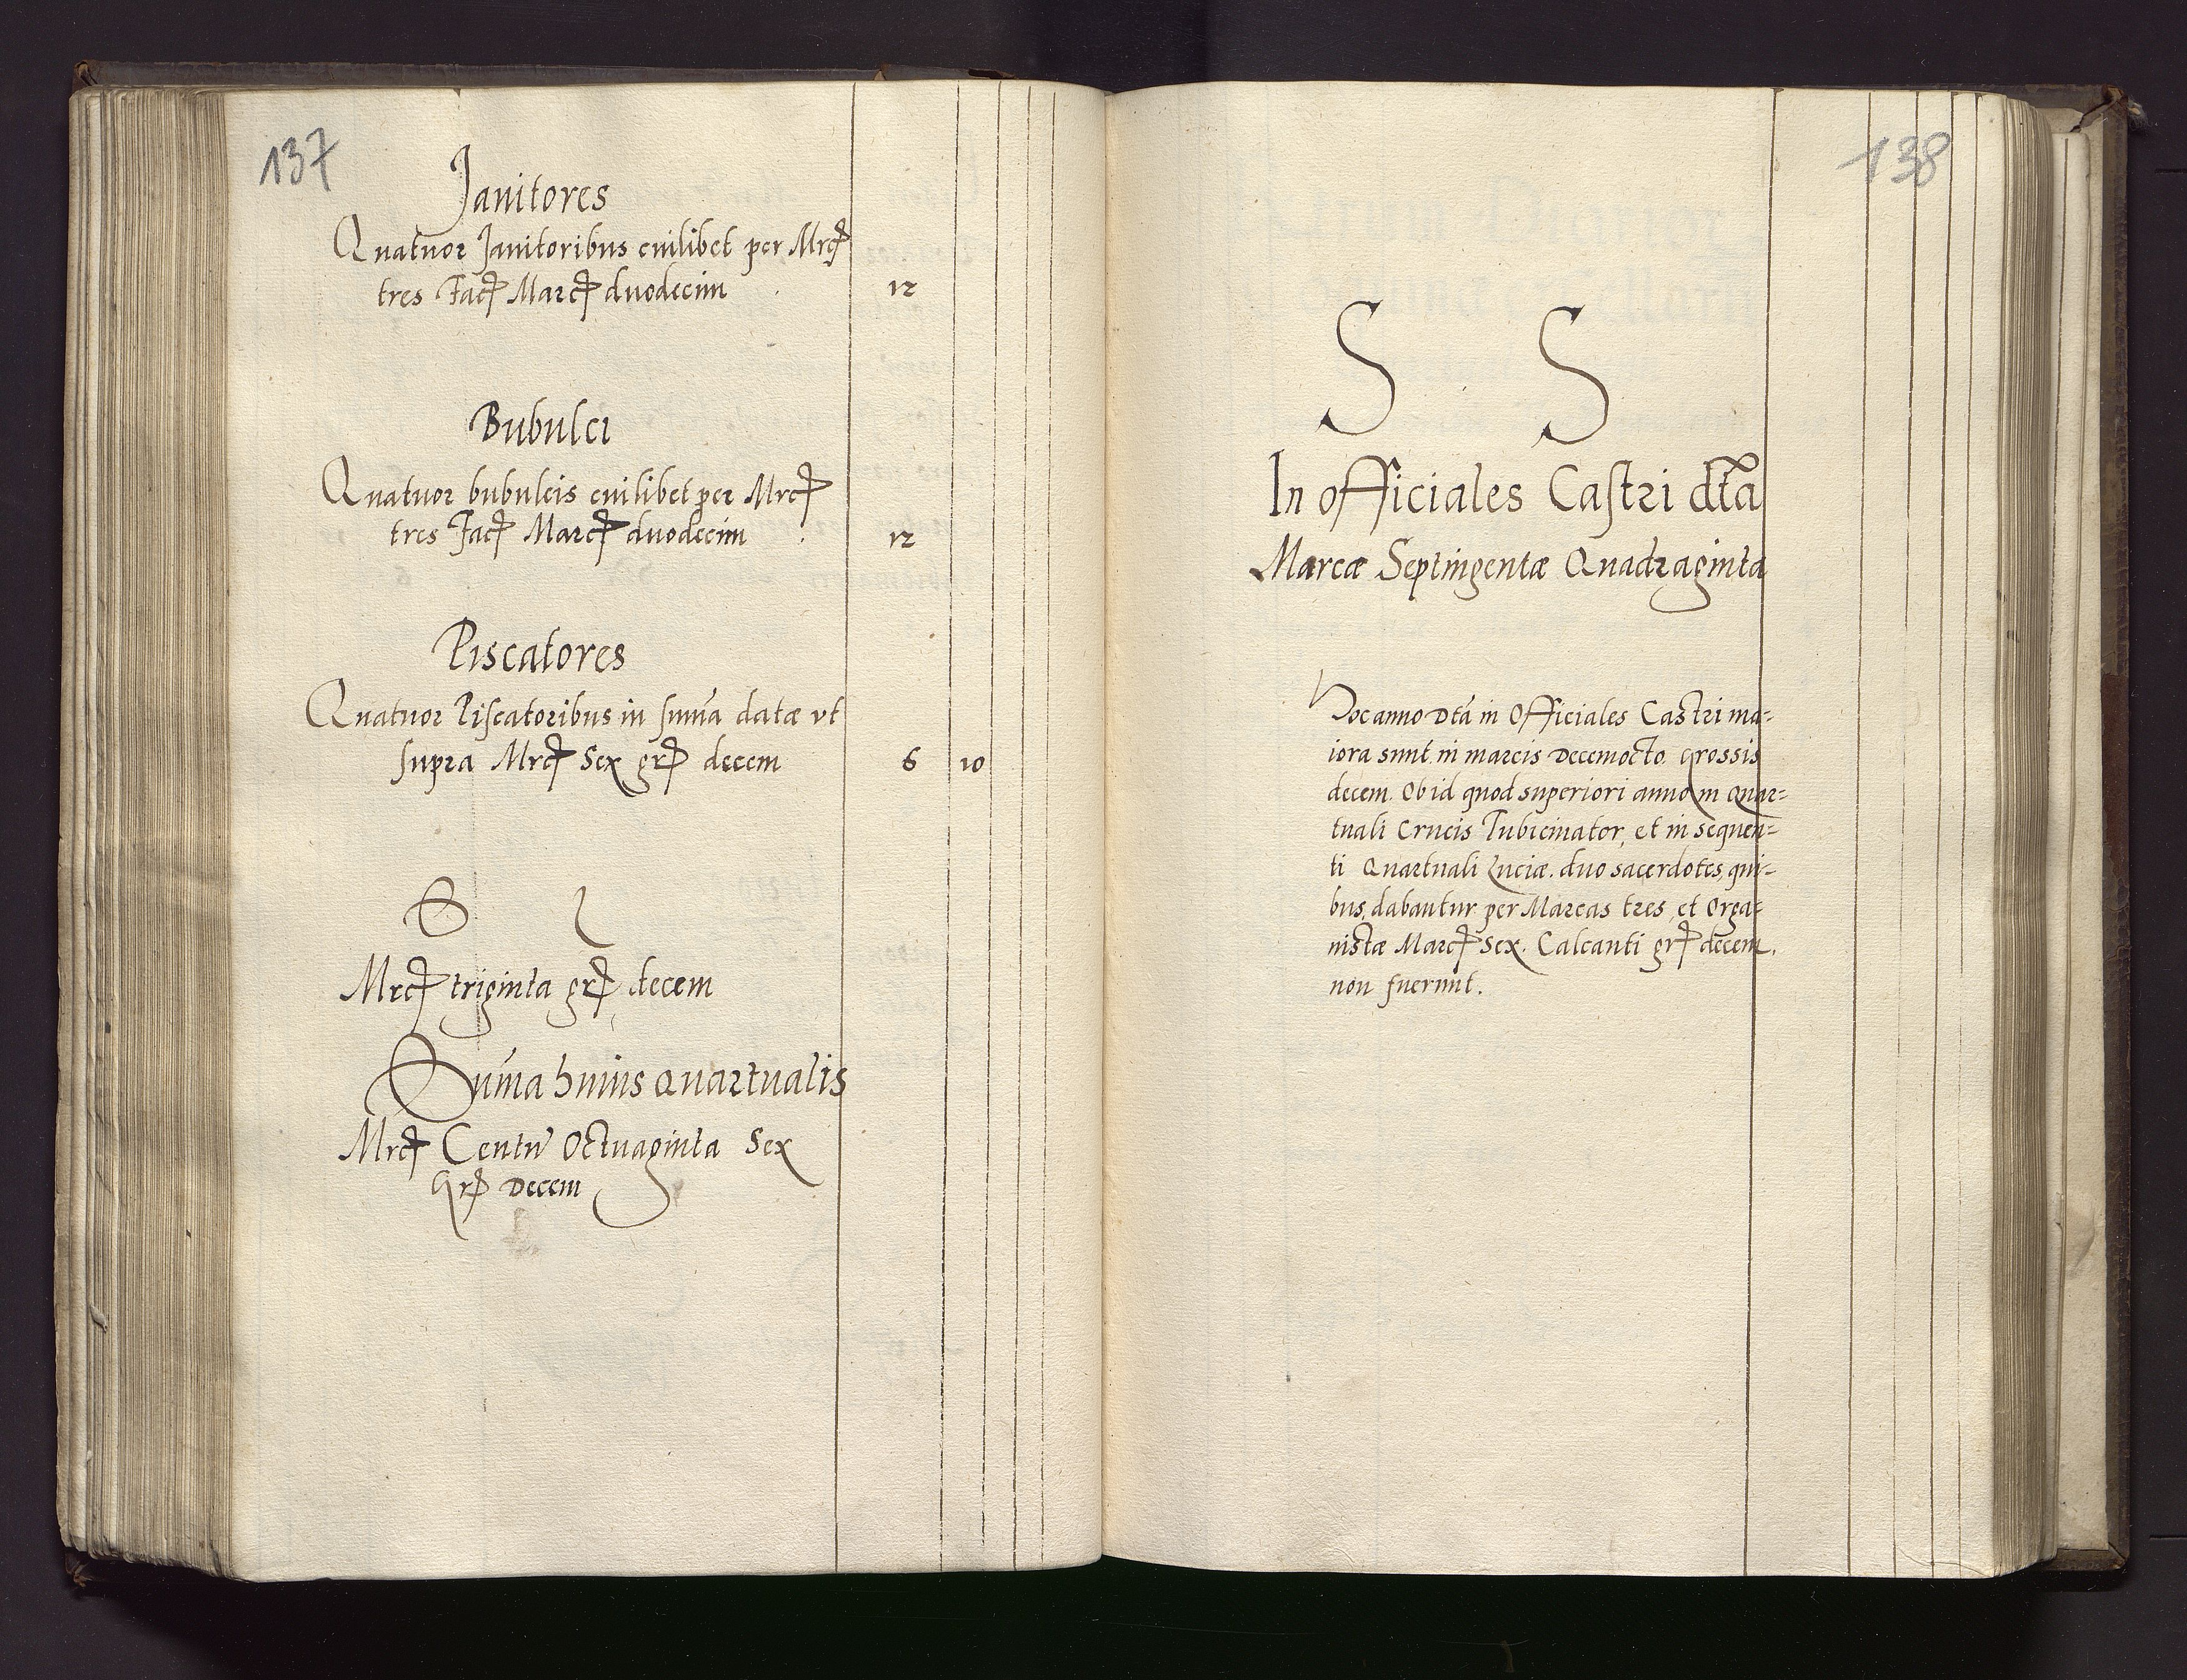 137
Janitores
Quatuor Janitoribus cuilibet per Mrcꝭ
tres Facꝭ Marcꝭ duodecim 12
Bubulci
Quatuor bubulcis cuilibet per Mrcꝭ
tres Facꝭ Marcꝭ duodecim 12
Piscatores
Quatuor Piscatoribus in sum̄a datæ vt
supra Mrcꝭ Sex grꝭ decem 6 10
S l
Mrcꝭ triginta grꝭ decem
Sum̄a huius Quartualis
Mrcꝭ Centū Octuaginta Sex
Grꝭ Decem
138
S S
In officiales Castri dt̄a
Marcæ Septingentæ Quadraginta
Hoc anno Dt̄a in Officiales Castri ma=
iora sunt in marcis Decemocto. Grossis
decem. Ob id quod superiori anno in Quar=
tuali Crucis Tubicinator, et in sequen=
ti Quartuali Luciæ. duo sacerdotes, qui=
bus, dabantur per Marcas tres, et Orga=
nistæ Marcꝭ sex. Calcanti grꝭ decem.
non fuerunt.